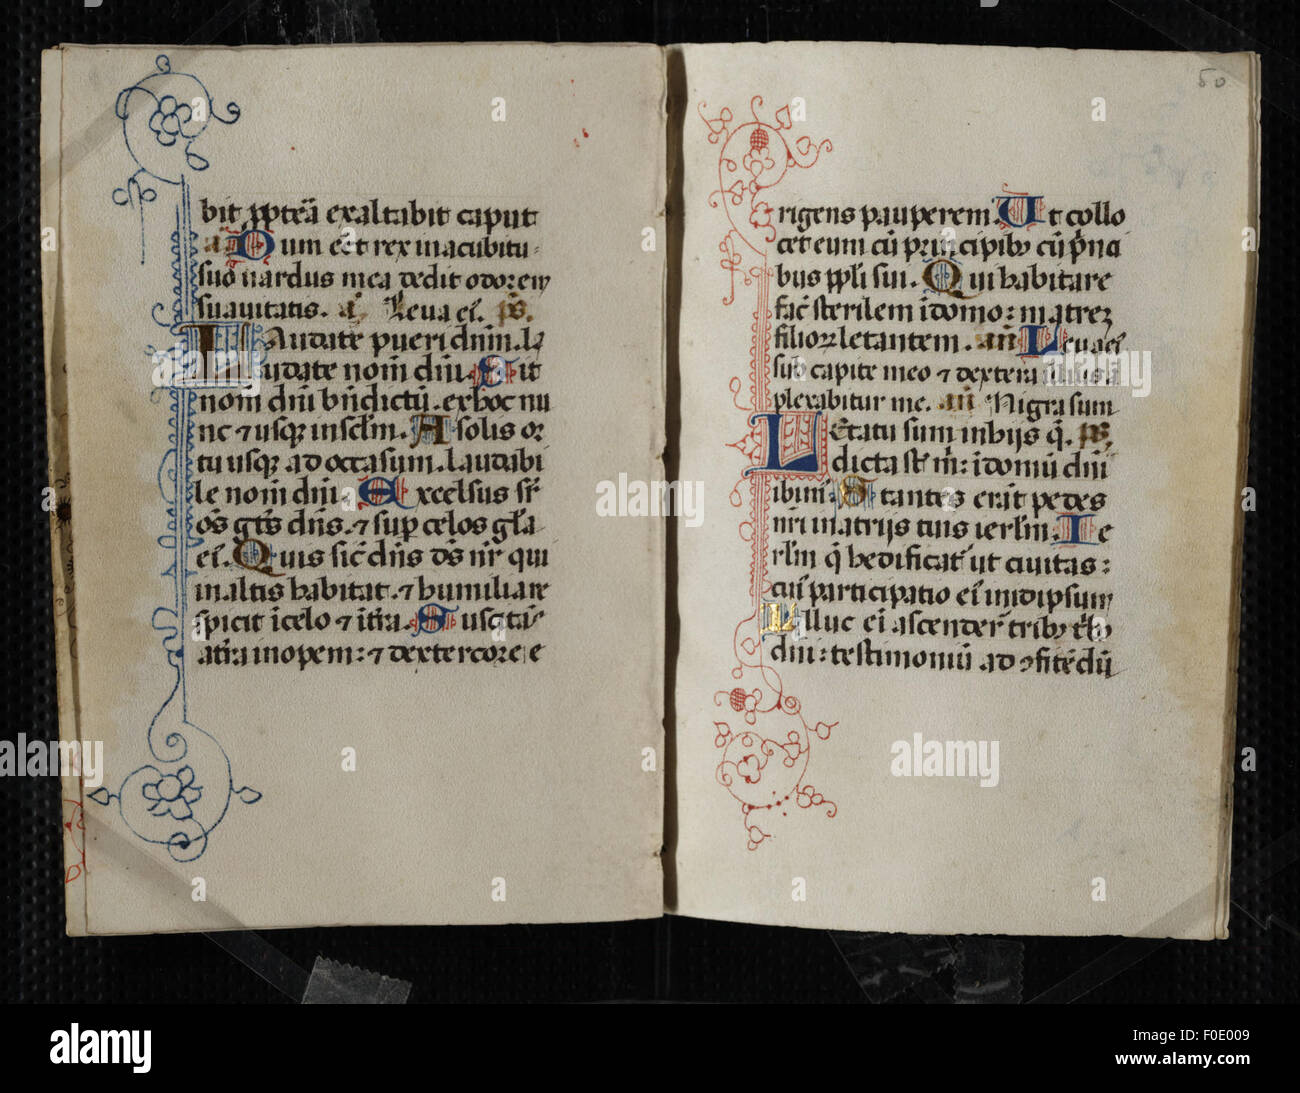 bit ꝓpteā exaltabit caput
a Dum eēt rex in acubitu
suo nardus mea dedit odorem
suauitatis. a Leua ei. ps.
LAudate pueri dnm̄. la
udate nom̄ dni. Sit
nom̄ dni bn̄dictū. ex hoc nu
nc ⁊ usqꝫ in sclm̄. A solis or
tu usqꝫ ad occasum. laudabi
le nom̄ dni. Excelsus sr̄
oēs gētes dn̄s. ⁊ suꝑ celos gl̄a
ei. Quis sic̄ dn̄s ds̄ nr̄ qui
in altis habitat. ⁊ humiliare
spicit ī celo ⁊ ī tr̄a. Suscitās
a tr̄a inopem: ⁊ de stercore e
50
rigens pauperem. Ut collo
cet eum cū principibꝫ cū p̄nci
bus ppl̄i sui. Qui habitare
fac̄ sterilem ī domo: matrem
filioꝝ letantem. an̄ Leua ei
sub capite meo ⁊ dextera illius ā
plexabitur me. an̄ Nigra sum
LEtatu sum in hijs q̄. ps.
dicta st̄ m̄: ī domū dni
ibim̄. Stantes erāt pedes
nr̄i in atrijs tuis ierlm̄. Ie
rlm̄ q̄ hedificat᷑ ut ciuitas:
cui participatio ei in idipsum
Illuc ei ascender̄ tribꝫ tbꝫ
dni: testimoniū ad ꝯfitēdū
alamy
Image ID: F0E009
www.alamy.com